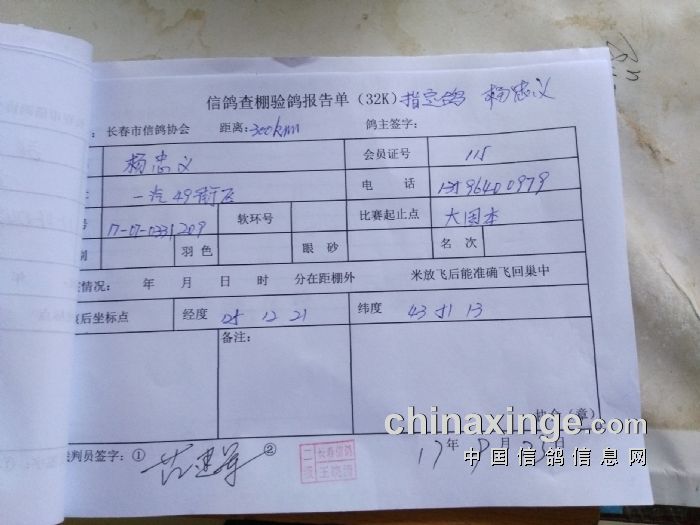 信鸽查棚验鸽报告单（32K）指定鸽 杨忠义
：长春市信鸽协会 距离：300km 鸽主签字：
杨忠义 会员证号 115
一汽49街区 电话
号 17-07-0331209 软环号 比赛起止点 大固本
别 羽色 眼砂 名次
情况： 年 月 日 时 分在距棚外 米放飞后能准确飞回巢中
后坐标点 经度 125 12 21 纬度 43 51 13
备注：
协会（章）
裁判员签字：① ② 17年9月25日
chinaxinge.com
中国信鸽信息网